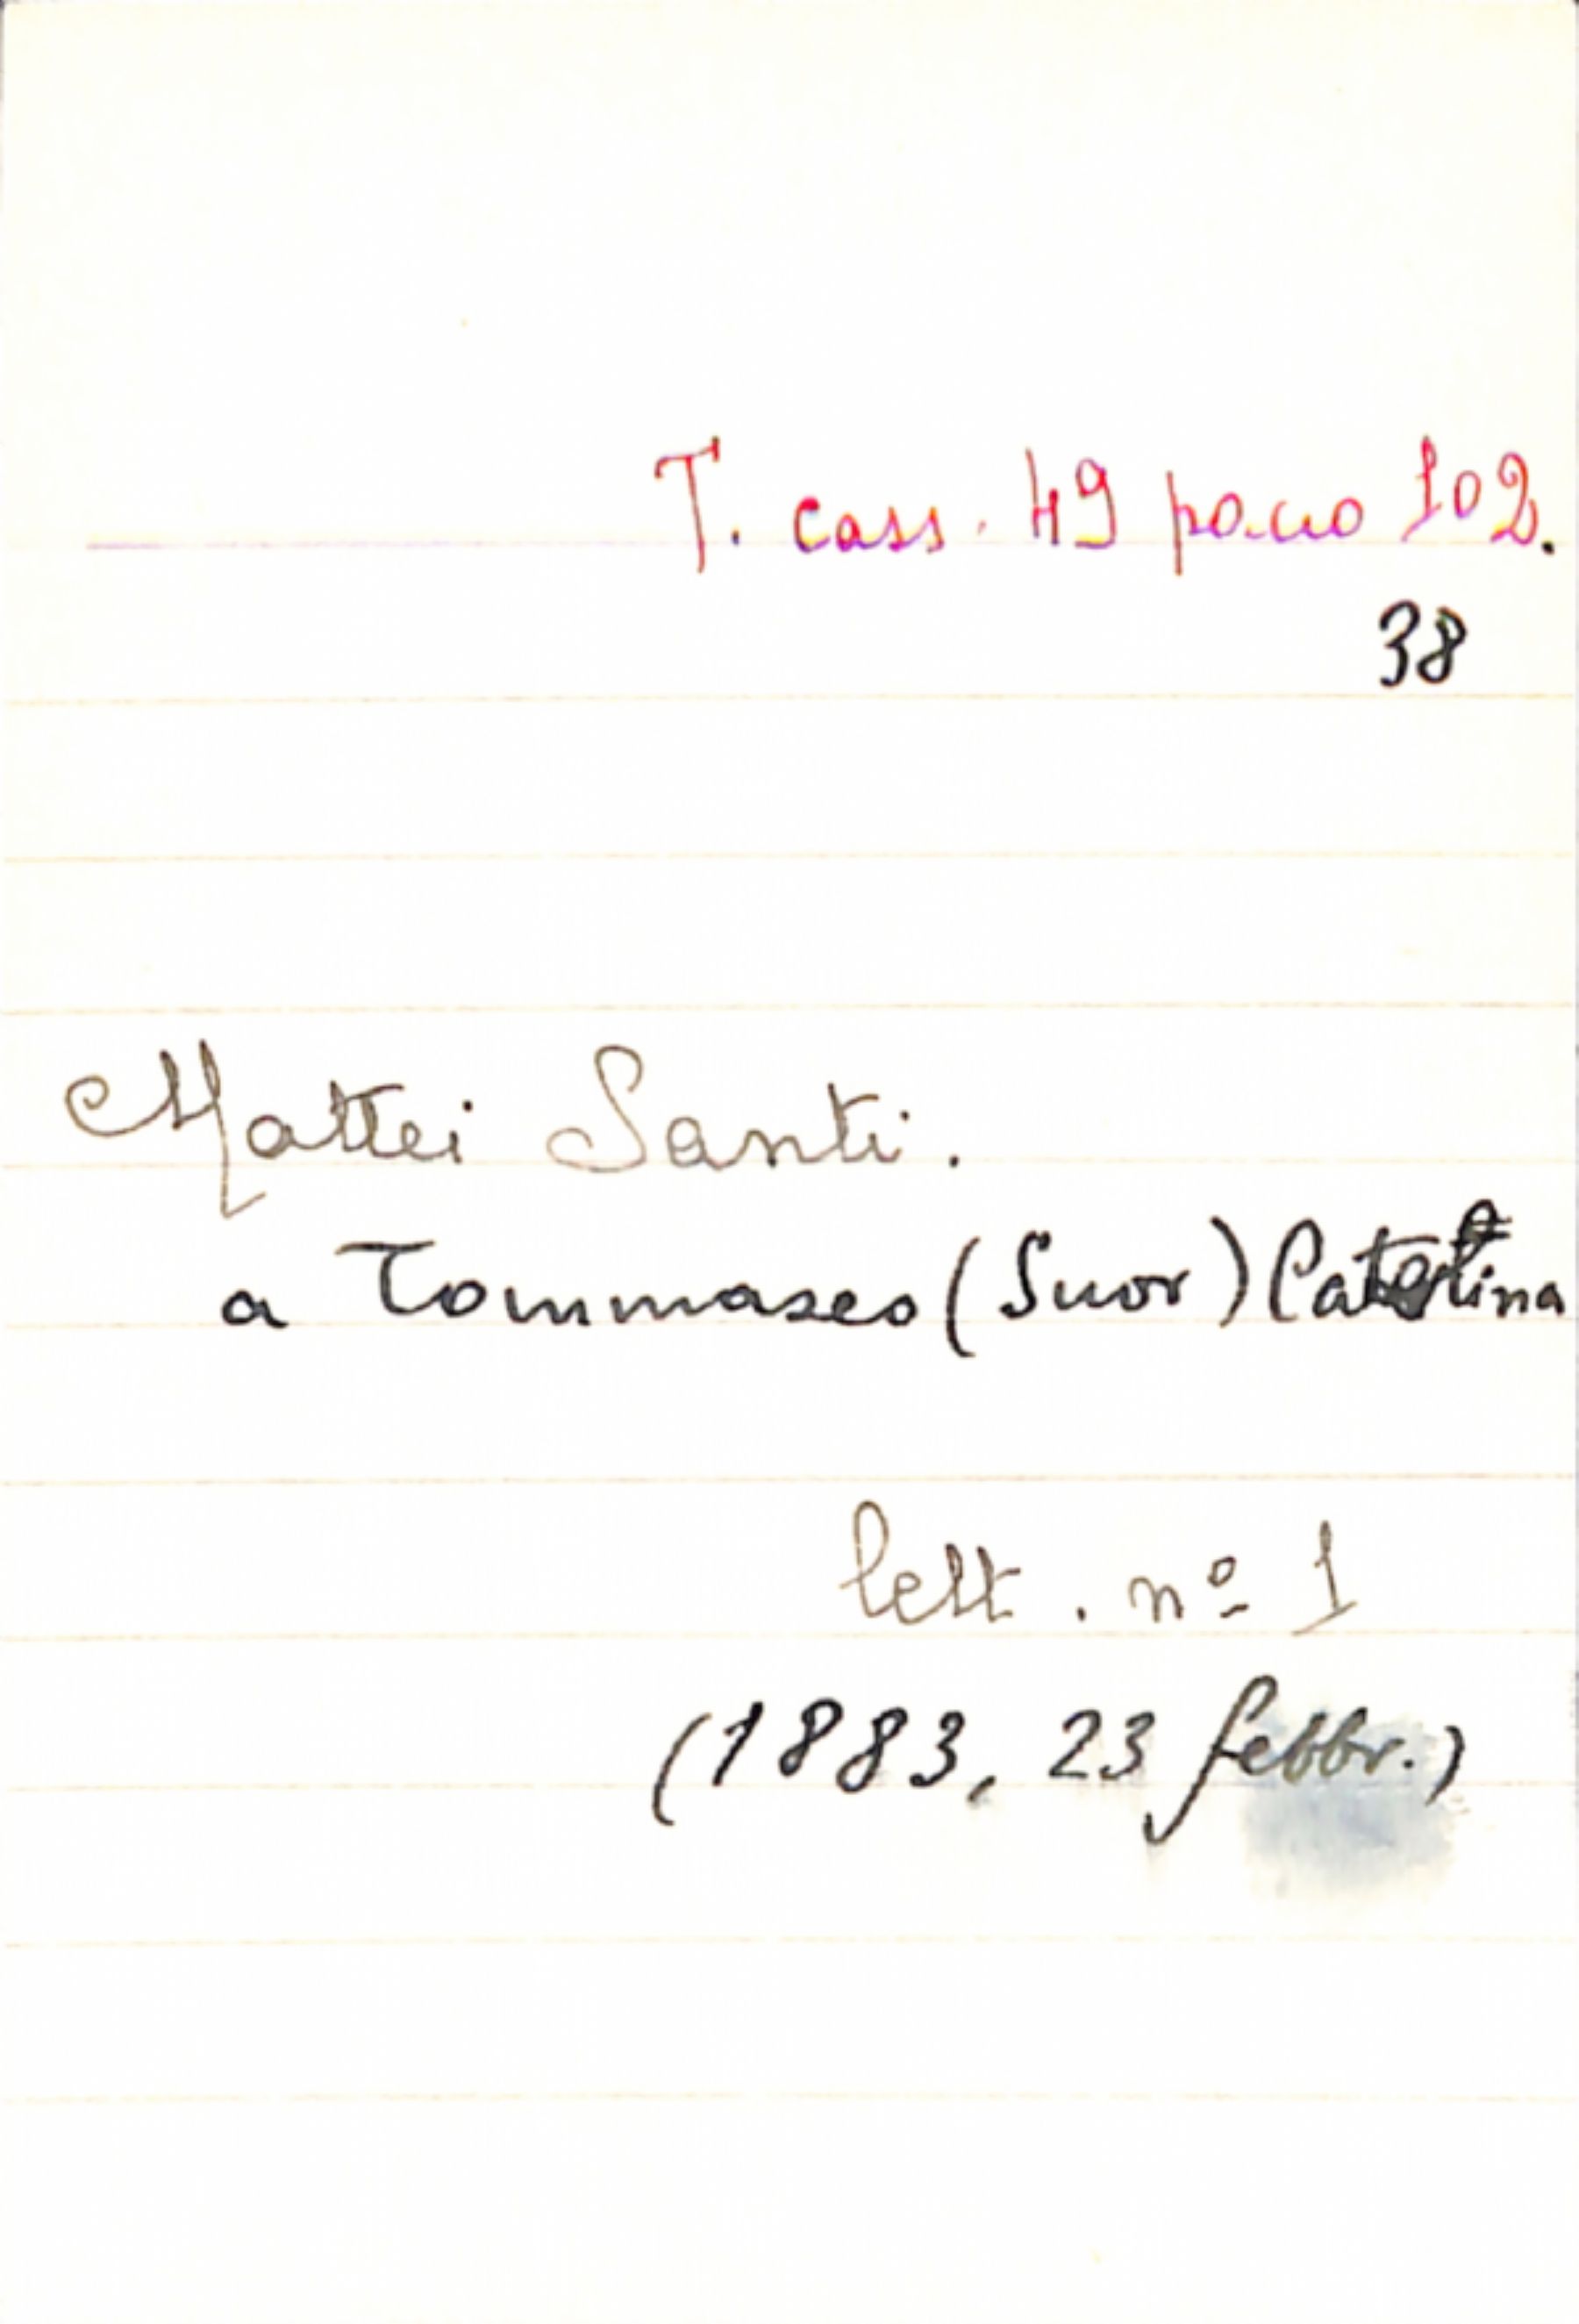 T. cass. 49 pacco 102.
38
Mattei Santi.
a Tommaseo (Suor) Caterina
lett. nº 1
(1883, 23 febbr.)